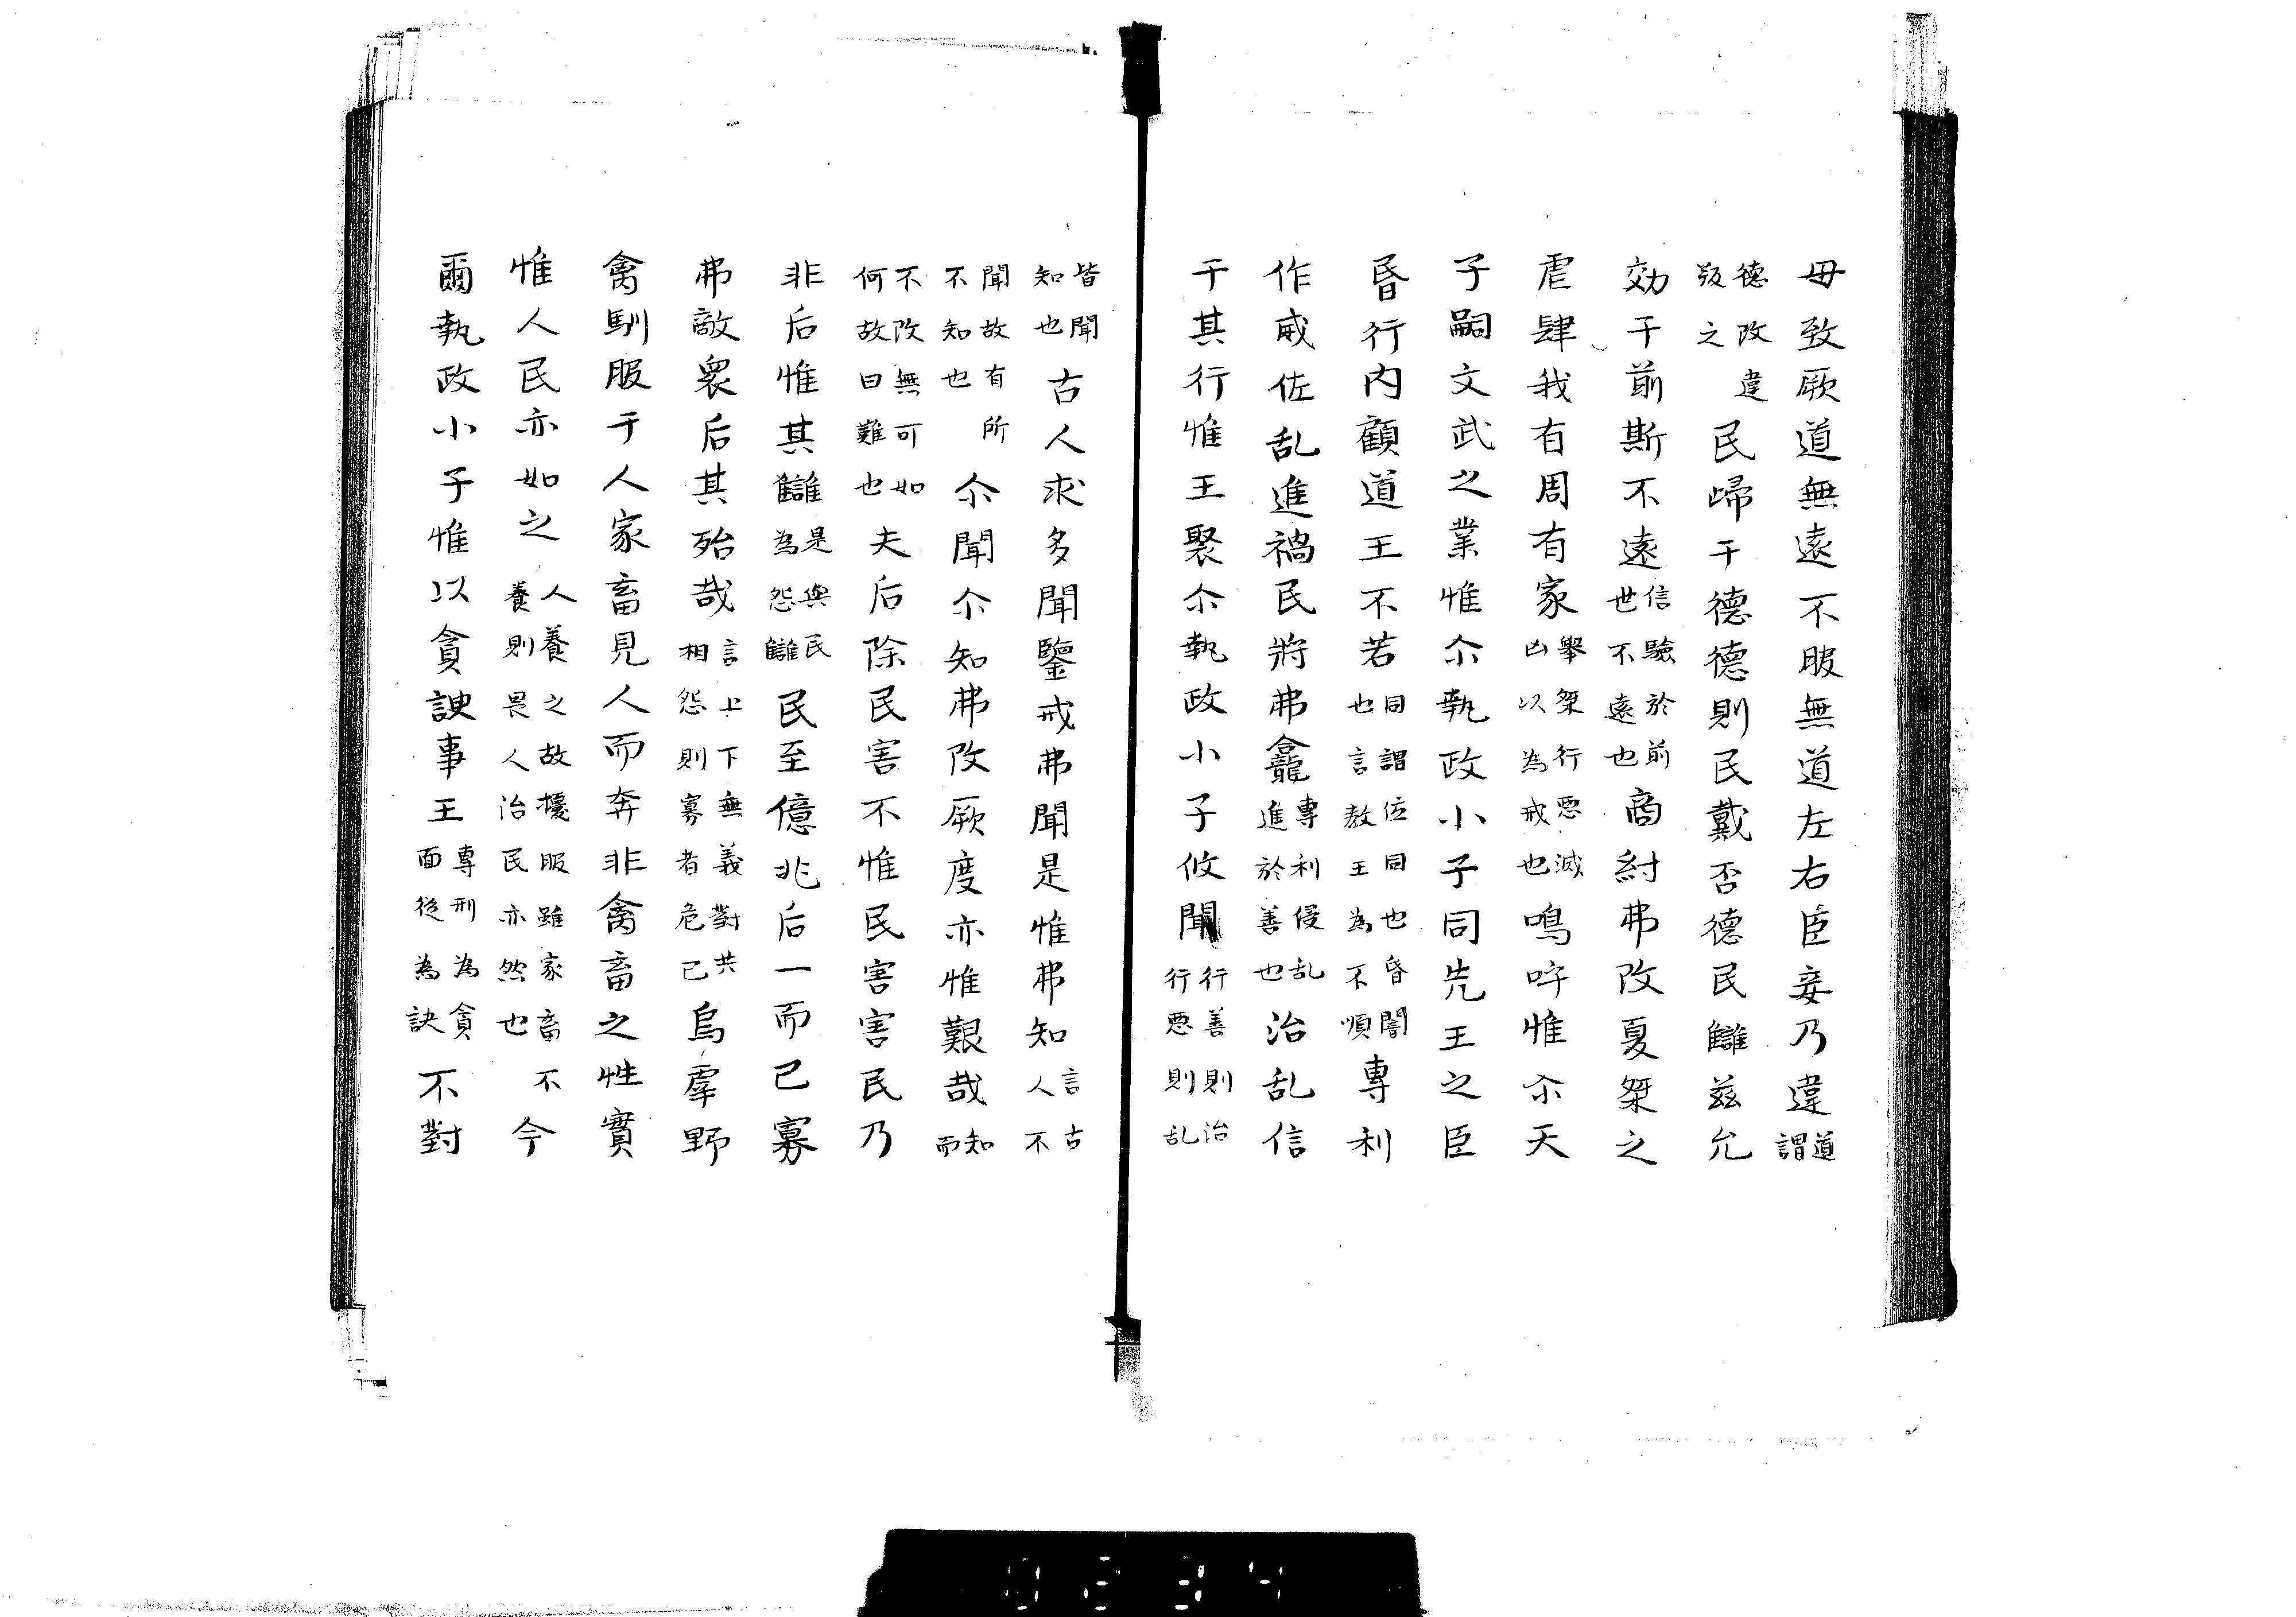 毋致厥道無遠不服無道左右臣妾乃違道謂
德政違叛之民歸于德德則民戴否德民讎茲允
効于前斯不遠信驗於前世不遠也商紂弗改夏桀之
虐肆我有周有家舉桀行悪滅凶以為戒也鳴呼惟尒天
子嗣文武之業惟尒執政小子同先王之臣
昏行内顧道王不若同謂位同也昏闇也言教王為不順專利
作威佐乱進禍民將弗龕專利侵乱進於善也治乱信
于其行惟王聚尒執政小子攸聞行善則治行悪則乱
皆聞知也古人求多聞鑒戒弗聞是惟弗知言古人不
聞故有所不知也尒聞尒知弗改厥度亦惟艱哉知而
不改無可如何故曰難也夫后除民害不惟民害害民乃
非后惟其讎是與民為怨讎民至億兆后一而已寡
弗敵衆后其殆哉言上下無義對共相怨則寡者危已烏虖野
禽馴服于人家畜見人而奔非禽畜之性實
惟人民亦如之人養之故擾服雖家畜不養則畏人治民亦然也今
爾執政小子惟以貪諛事王專刑為貪面從為訣不對